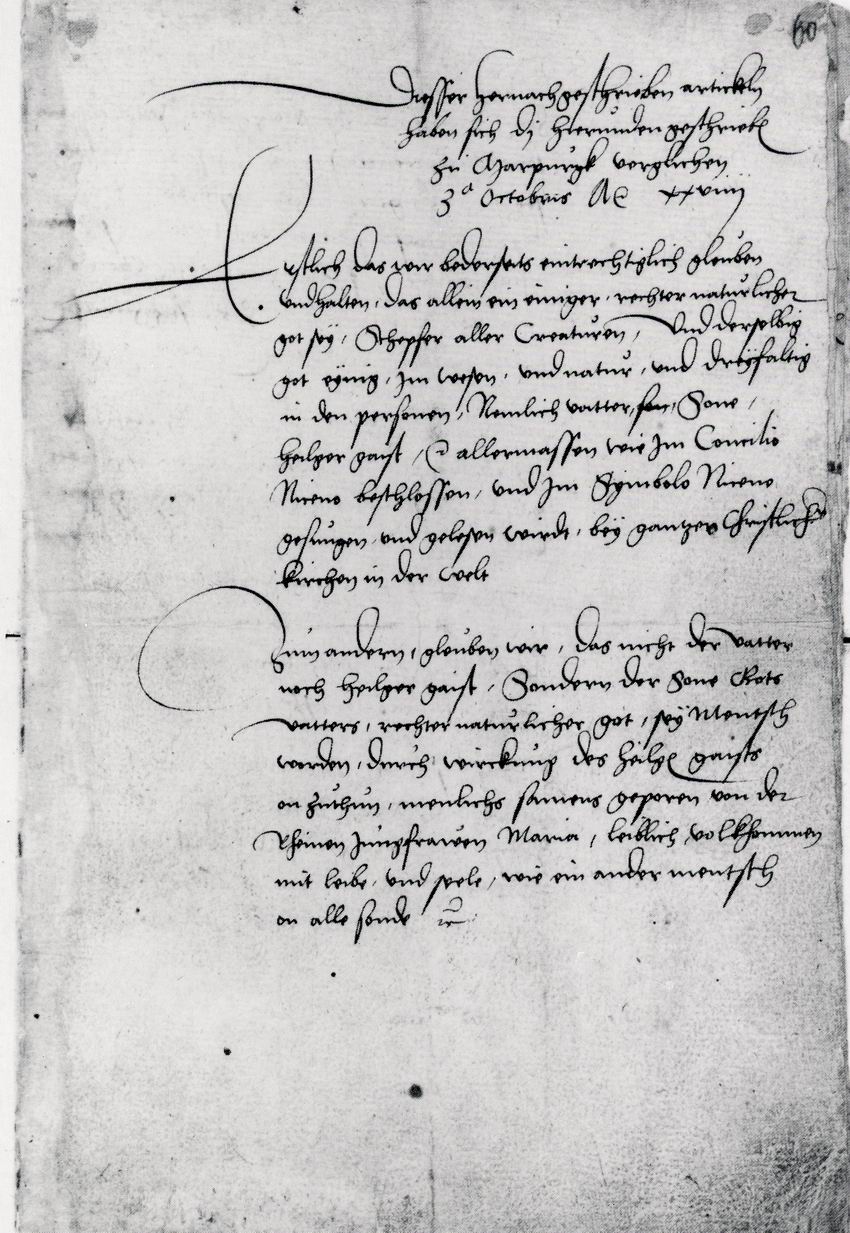 60
Diesser hernachgeschrieben artickeln
haben sich dj hierunden geschrieben
zu Marpurgk verglichen
3ᵃ Octobris Aō xxviiij
Erstlich das wir bederseits eintrechtiglich gleuben
und halten, das allein ein einiger, rechter naturlicher
got sey, Schepfer aller Creaturen, Und derselbig
got eynig, jm wesen, und natur, und dreyfaltig
in den personen, Nemlich vatter, son, Sone,
heilger gaist, ⁊c allermassen wie jm Concilio
Niceno beschlossen, und jm Symbolo Niceno
gesungen und gelesen wirdt, bey gantzer Christlicher
kirchen in der welt
Zum andern, gleuben wir, das nicht der vatter
noch heilger gaist, Sondern der Sone Gots
vatters, rechter naturlicher got, sey Mentsch
worden, durch wirckung des heilgen gaists
on zuthun, menlichs samens geporen von der
Rheinen Jungfrawen Maria, leiblich volkhommen
mit leibe, und seele, wie ein ander mentsch
on alle sonde ⁊c